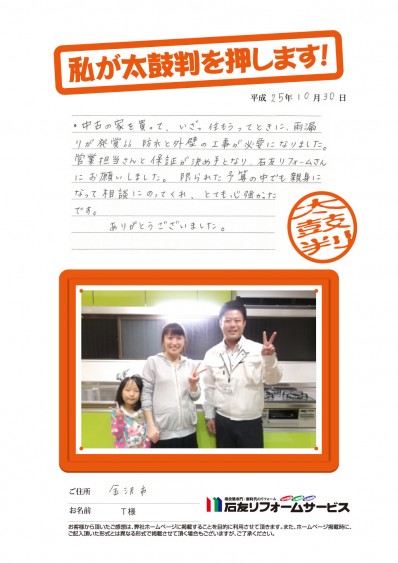 私が太鼓判を押します!
平成 25年 10月 30日
・中古の家を買って、いざっ 住もうってときに、雨漏
りが発覚!! 防水と外壁の工事が必要になりました。
営業担当さんと保証が決め手となり、石友リフォームさん
にお願いしました。 限られた予算の中でも親身に
なって相談にのってくれ、とても心強かった
です。
ありがとうございました。
太鼓判
ご住所 金沢市
お名前 T様
石友リフォームサービス
お客様から頂いたご感想は、弊社ホームページに掲載することを目的に利用させて頂きます。また、ホームページ掲載時に、
ご記入頂いた形式とは異なる形式で掲載させて頂く場合もございますが、ご了承ください。